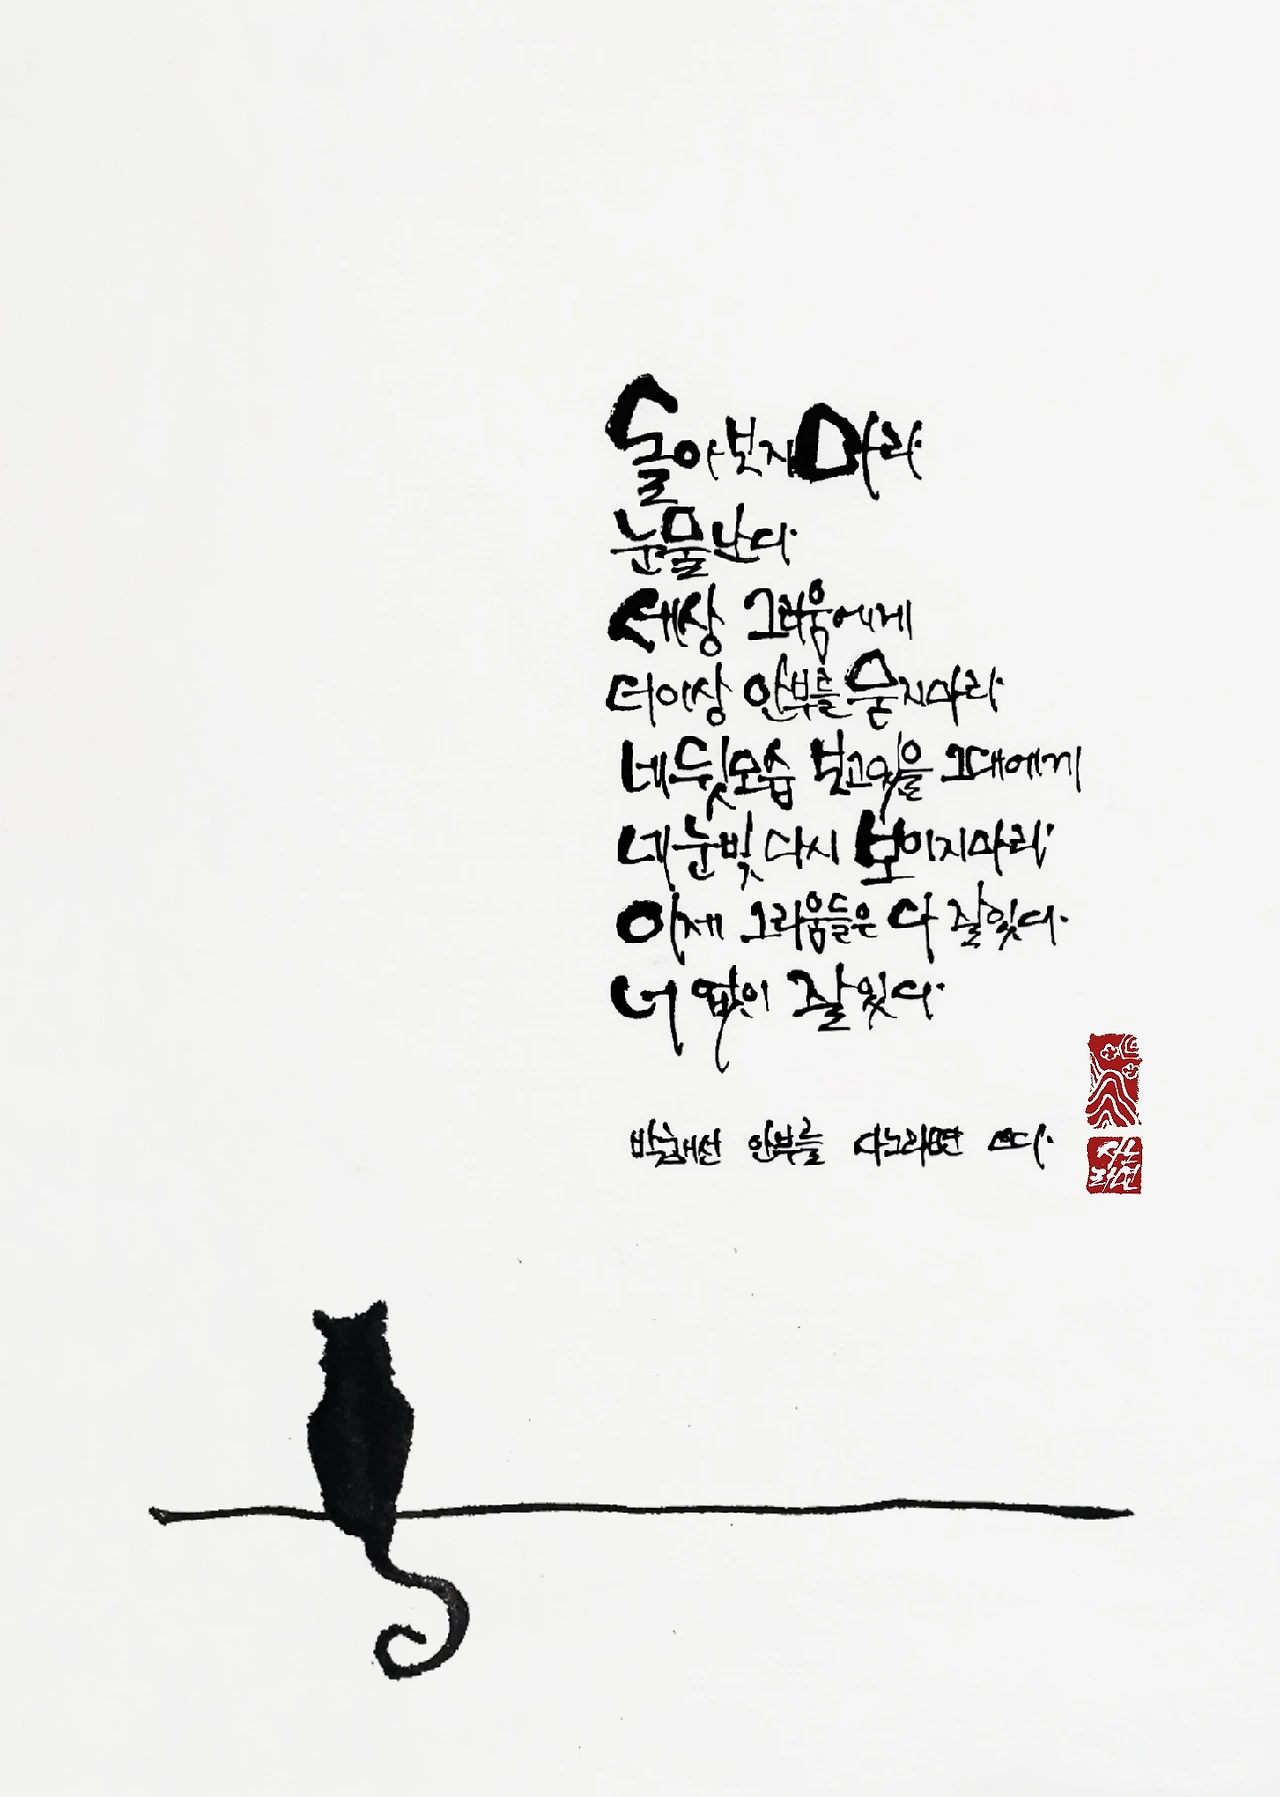 돌아보지 마라
눈물난다
세상 그리움에게
더이상 안부를 묻지마라
네 뒷모습 보고있을 그대에게
네 눈빛 다시 보이지마라
이제 그리움들은 다 잘있다
너 없이 잘있다
박해선 안부를 사노라면 쓰다
사노
라면